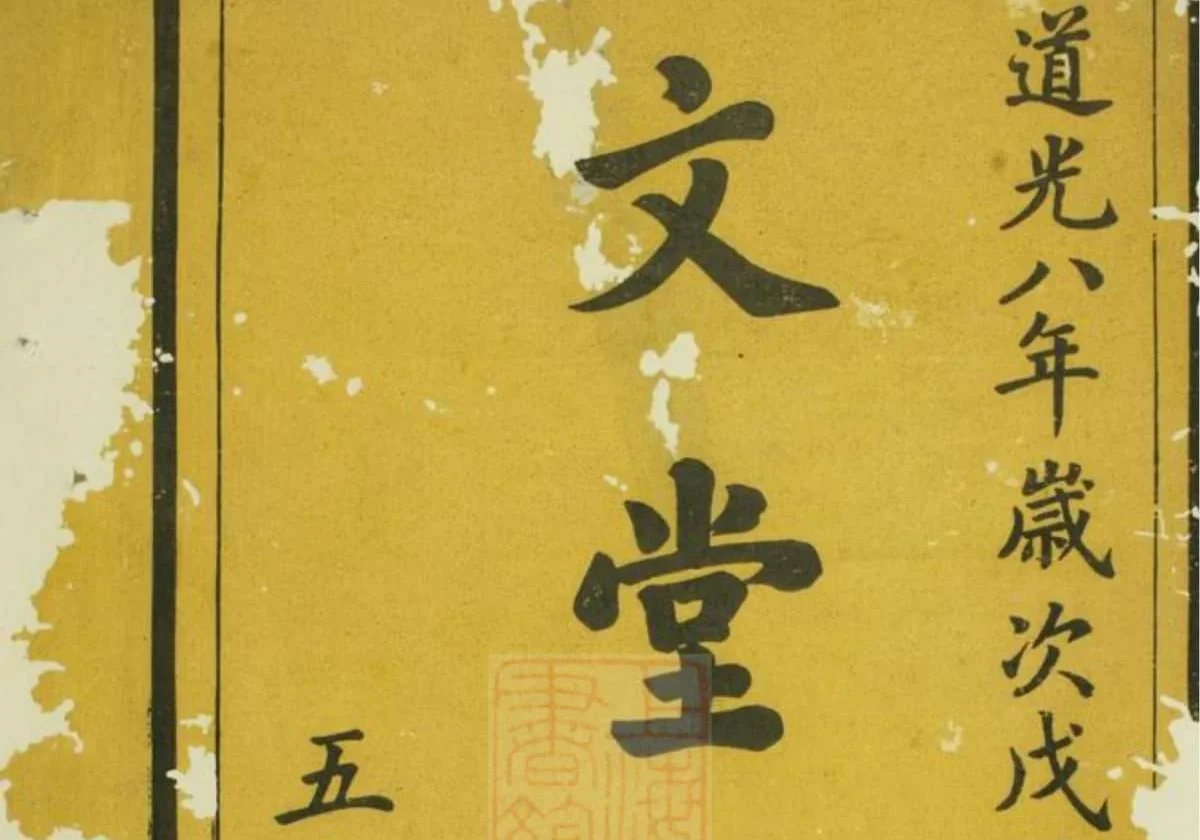 道光八年嵗次戊
文堂
五